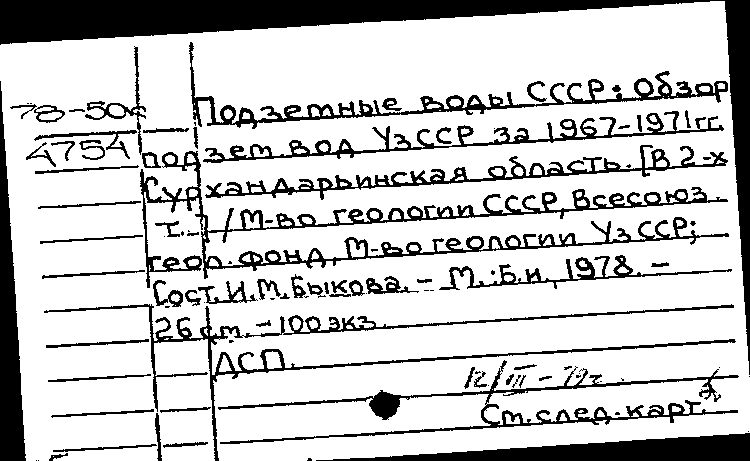 78-50с Подземные воды СССР: Обзор
4754 подзем. вод УзССР за 1967-1971гг.
Сурхандарьинская область. [В 2-х
т.] / М-во геологии СССР, Всесоюз.
геол. фонд, М-во геологии УзССР;
Сост. И.М. Быкова. - М.: Б.и., 1978. -
26 см. - 100 экз.
ДСП.
12/III - 79г.
См. след. карт.